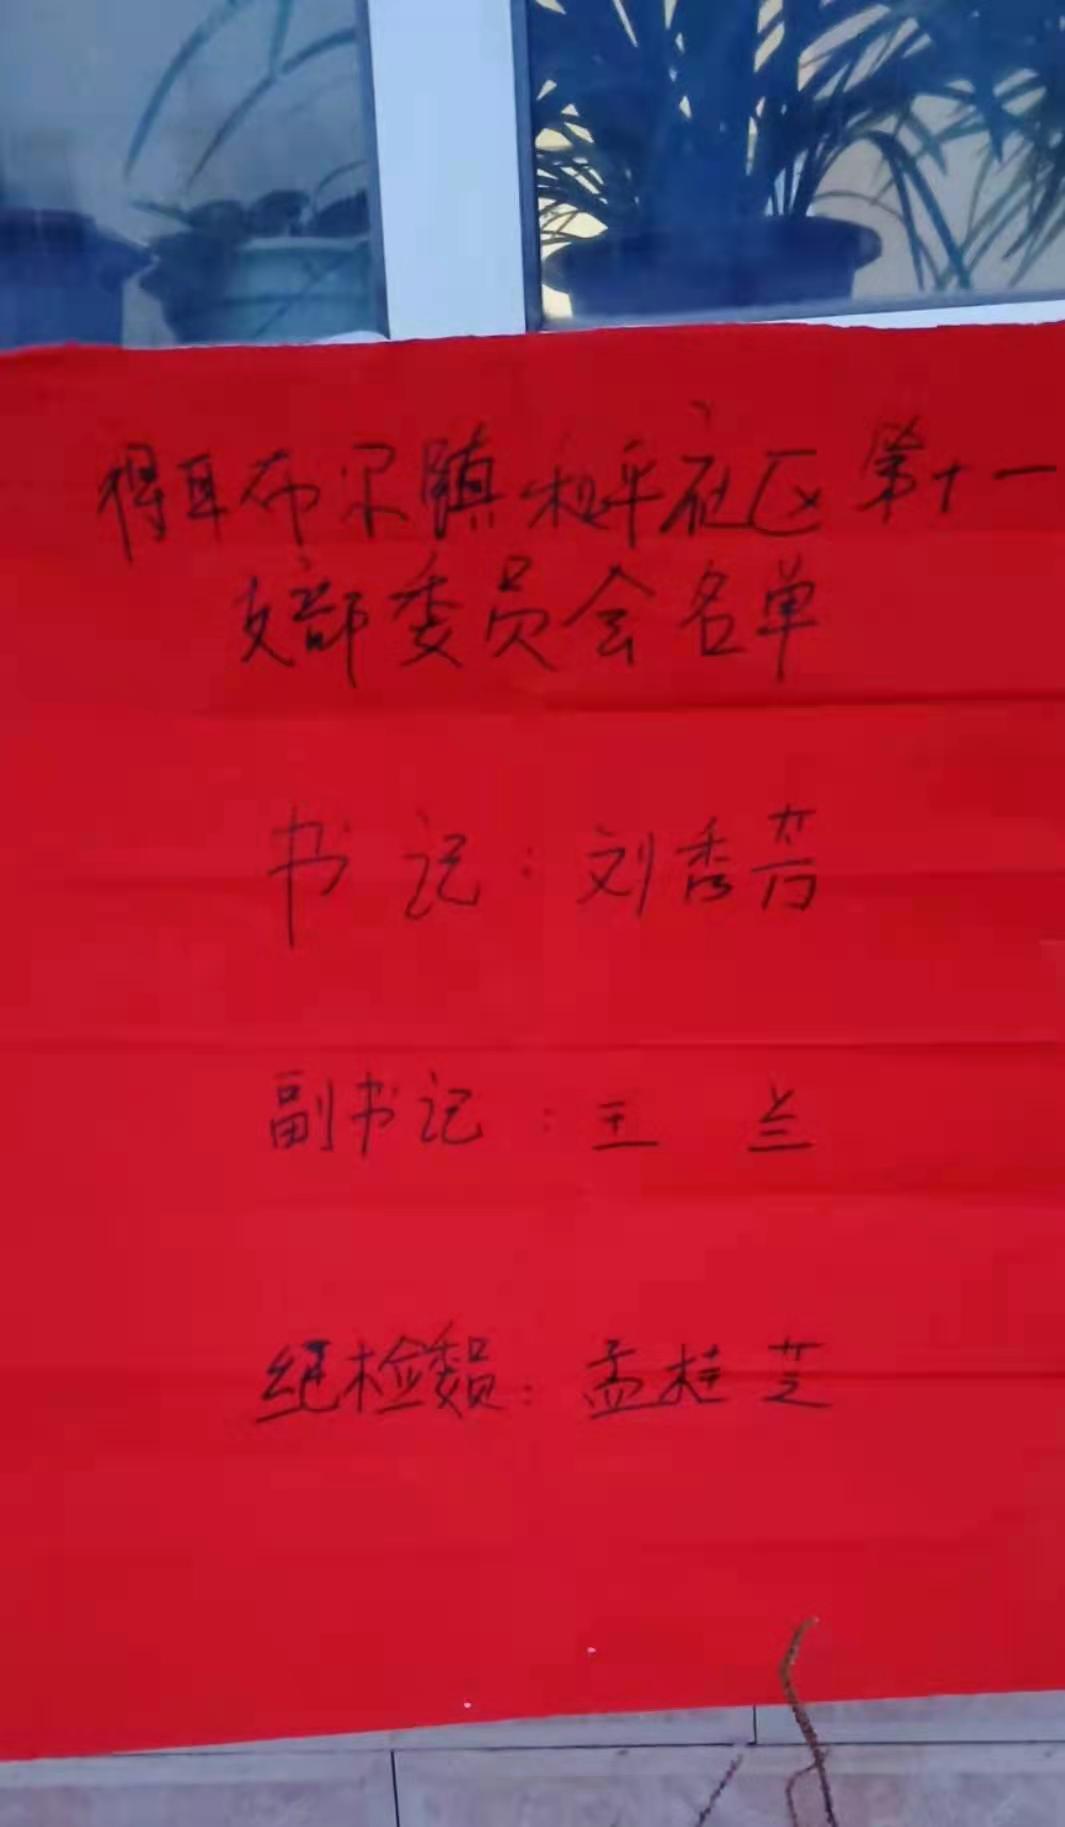 得耳布尔镇和平社区第十一
支部委员会名单
书记：刘秀芳
副书记：王兰
纪检委员：孟桂芝